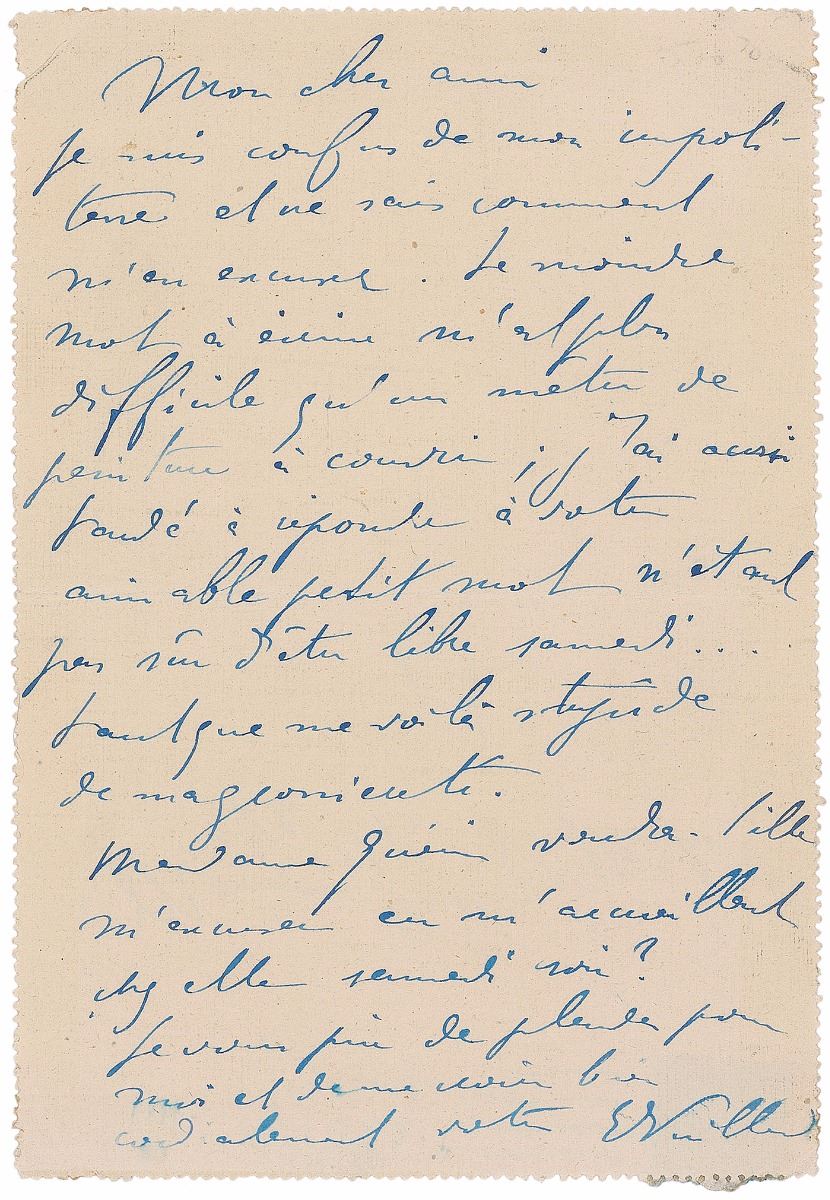 Mon cher ami
je suis confus de mon impoli-
tesse et ne sais comment
m'en excuser. Le moindre
mot à écrire m'est plus
difficile qu'un mètre de
peinture à couvrir ; j'ai aussi
tardé à répondre à votre
aimable petit mot n'étant
pas sûr d'être libre samedi....
tant que me voilà stupide
de
Madame Guérin voudra-t'elle
m'excuser en m'accueillant
chez elle samedi soir ?
Je vous prie de plaider pour
moi et de me croire bien
cordialement votre EVuillard